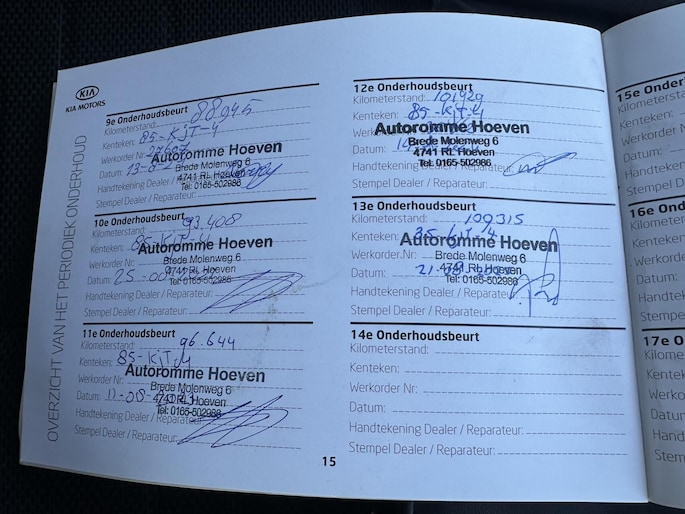 KIA
KIA MOTORS
OVERZICHT VAN HET PERIODIEK ONDERHOUD
9e Onderhoudsbeurt
Kilometerstand: 88945
Kenteken: 85-KJT-4
Werkorder Nr: 27607
Datum: 13-
Handtekening Dealer / Reparateur:
Stempel Dealer / Reparateur:
Autoromme Hoeven
Brede Molenweg 6
4741 RL Hoeven
Tel: 0165-502986
10e Onderhoudsbeurt
Kilometerstand: 93.408
Kenteken: 85-KJT-4
Werkorder Nr:
Datum: 25-
Handtekening Dealer / Reparateur:
Stempel Dealer / Reparateur:
Autoromme Hoeven
Brede Molenweg 6
4741 RL Hoeven
Tel: 0165-502986
11e Onderhoudsbeurt
Kilometerstand: 96.644
Kenteken: 85-KJT-4
Werkorder Nr:
Datum: 11-08-
Handtekening Dealer / Reparateur:
Stempel Dealer / Reparateur:
Autoromme Hoeven
Brede Molenweg 6
4741 RL Hoeven
Tel: 0165-502986
12e Onderhoudsbeurt
Kilometerstand:
Kenteken: 85-KJT-4
Werkorder Nr:
Datum:
Handtekening Dealer / Reparateur:
Stempel Dealer / Reparateur:
Autoromme Hoeven
Brede Molenweg 6
4741 RL Hoeven
Tel: 0165-502986
13e Onderhoudsbeurt
Kilometerstand:
Kenteken:
Werkorder Nr:
Datum: 21-
Handtekening Dealer / Reparateur:
Stempel Dealer / Reparateur:
Autoromme Hoeven
Brede Molenweg 6
4741 RL Hoeven
Tel: 0165-502986
14e Onderhoudsbeurt
Kilometerstand:
Kenteken:
Werkorder Nr:
Datum:
Handtekening Dealer / Reparateur:
Stempel Dealer / Reparateur:
15
15e Onder
Kilometerst
Kenteken:
Werkorder
Datum:
Handteken
Stempel
16e On
Kilomete
Kenteke
Werkor
Datum
Handt
Stem
17e O
Kilom
Kente
Werk
Datu
Hand
Stem